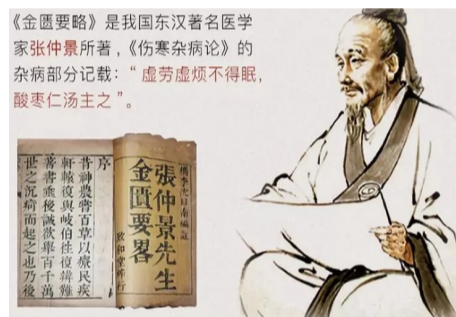 《金匮要略》是我国东汉著名医学
家张仲景所著，《伤寒杂病论》的
杂病部分记载：“虚劳虚烦不得眠，
酸枣仁汤主之”。
張仲景先生
金匱要畧
致和堂梓行
序
昔神農嘗百草以療民疾
軒轅復與岐伯徃復講難
著書垂後誠欲舉百千萬
世之沉痾而起之也乃後